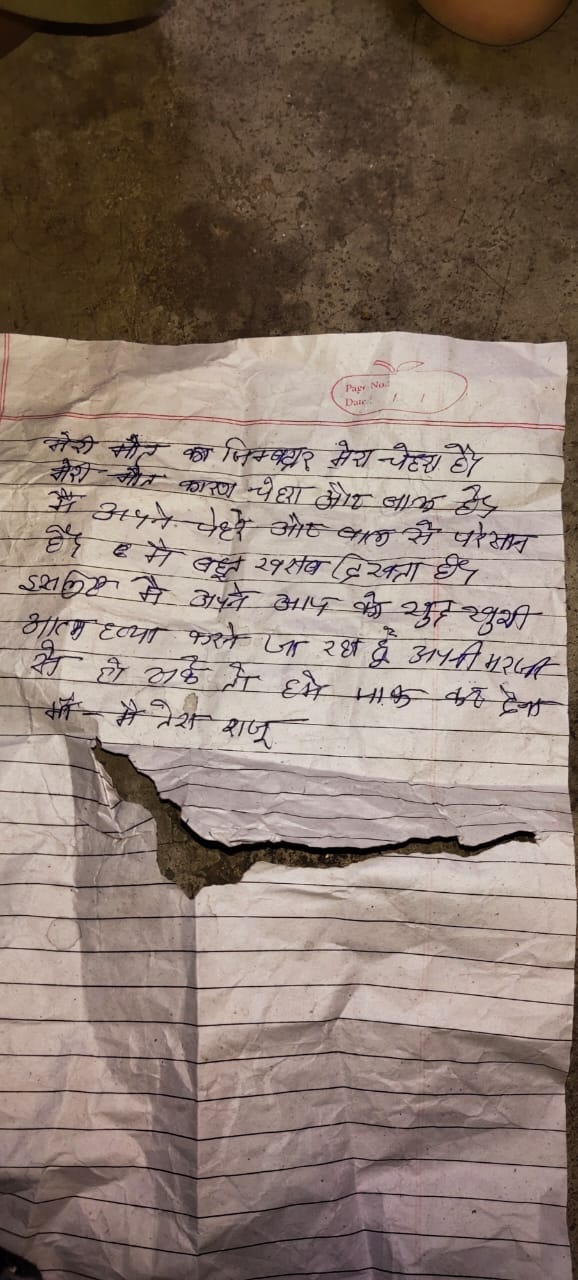 Page No.:
Date.: / /
मेरी मौत का जिम्मदार मेरा चेहरा है।
मेरी मौत कारण चेहरा और बाल है।
मै अपने चेहरे और बाल से परेसान
है। मै बहुत खराब दिखता है।
इसलिए मै अपने आप को खुद खुशी
आत्म हत्या करने जा रहा हूँ अपनी मरजी
से हो सके तो हमे माफ कर देना
माँ मै तेरा राजू